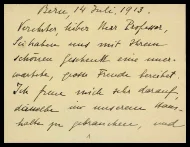 Bern, 14 Juli, 1913.
Verehrter lieber Herr Professor,
Sie haben uns mit Ihrem
schönen Geschenk eine uner-
wartete, grosse Freude bereitet.
Ich freue mich sehr darauf,
dasselbe in unserem Haus-
halte zu gebrauchen, und